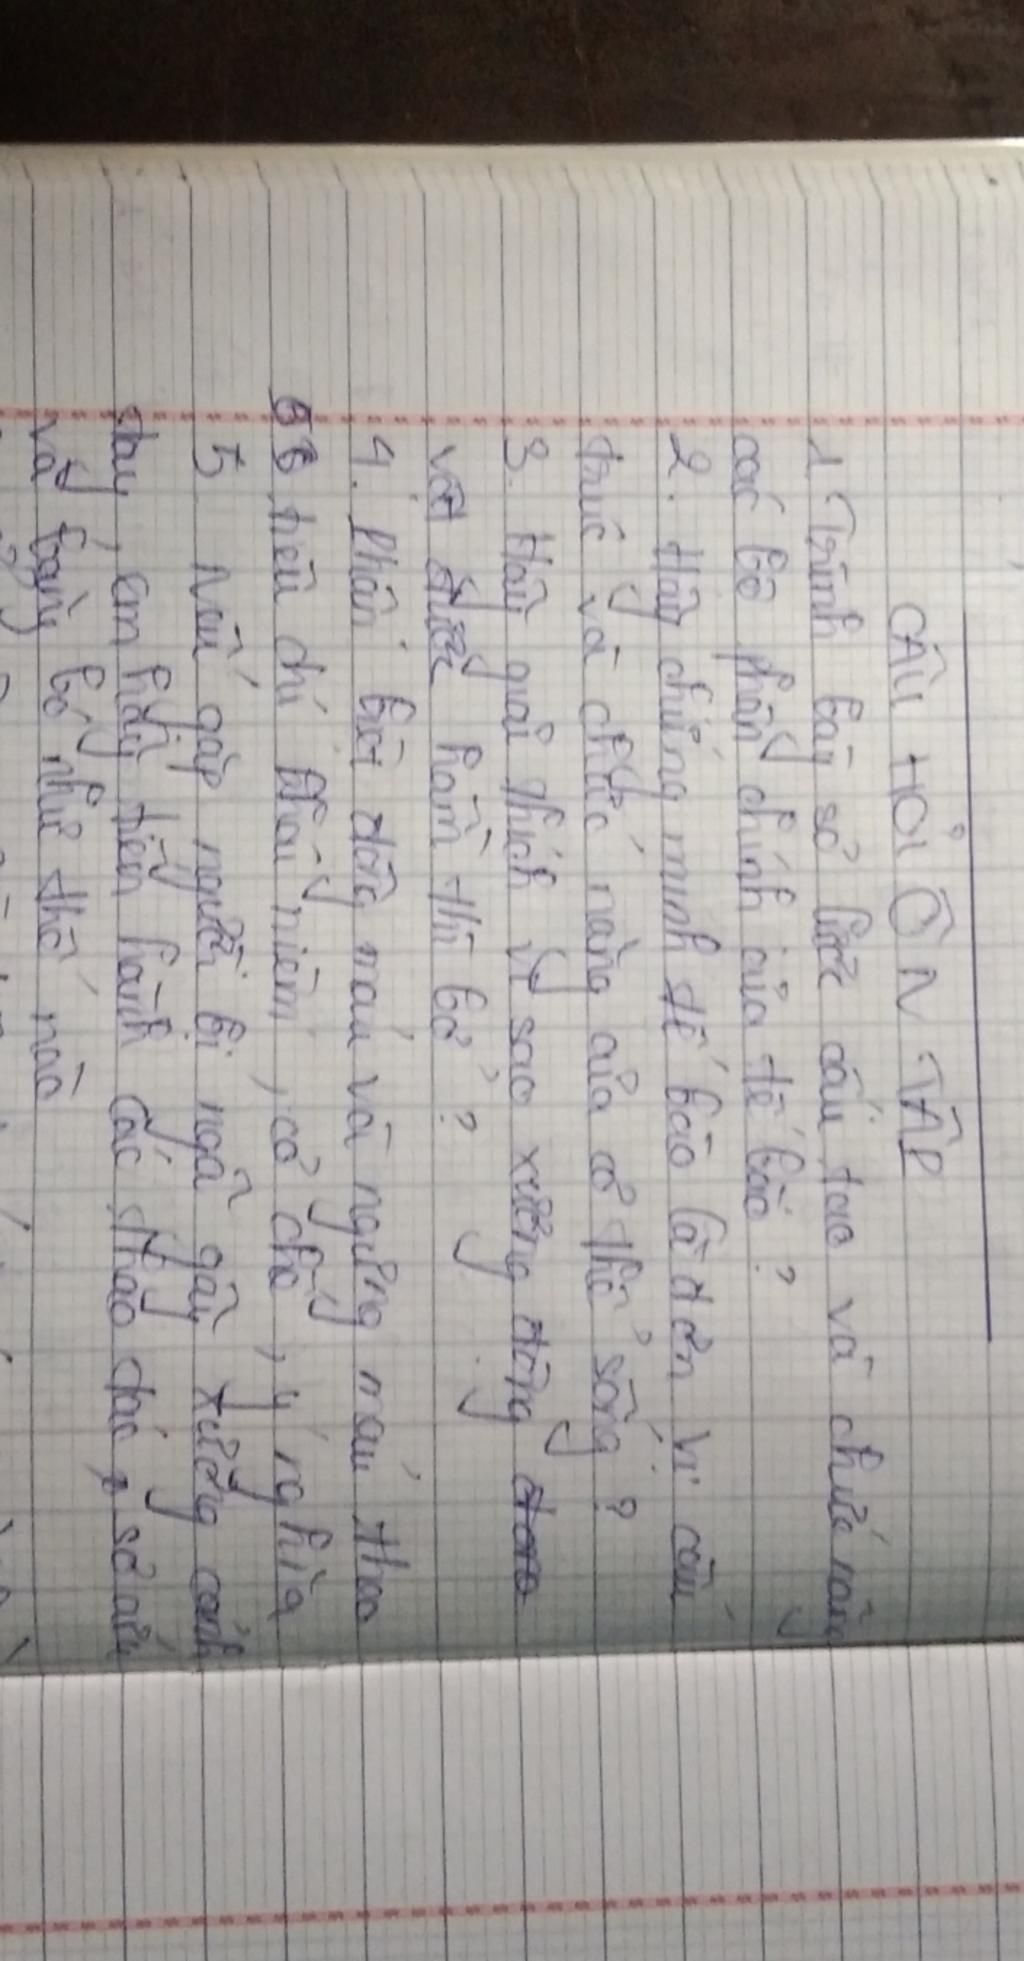 CÂU HỎI ÔN TẬP
1 Trình bày sơ lược cấu tạo và chức năng
các bộ phận chính của tế bào ?
2. Hãy chứng minh tế bào là đơn vị cấu
trúc và chức năng của cơ thể sống ?
3. Hãy giải thích vì sao xương động
vật được hầm thì bở ?
4. Phân biệt đông máu và ngưng máu theo
tiêu chí khái niệm, cơ chế, ý nghĩa
5. Nếu gặp người bị ngã gãy xương cánh
tay, em hãy tiến hành các thao tác sơ cứu
và băng bó như thế nào